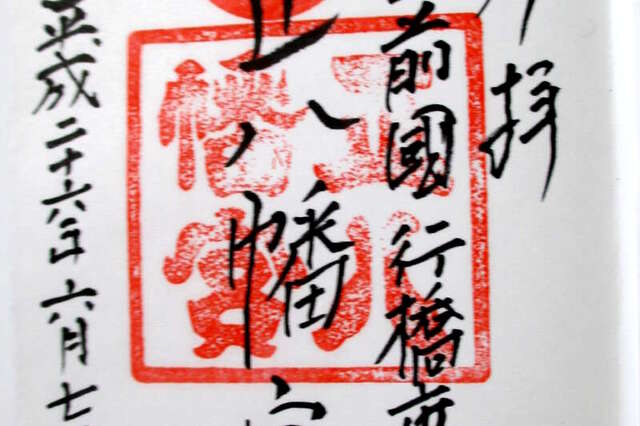 拝
前國行橋市
正八幡宮
平成二十六年六月七
正八幡宮